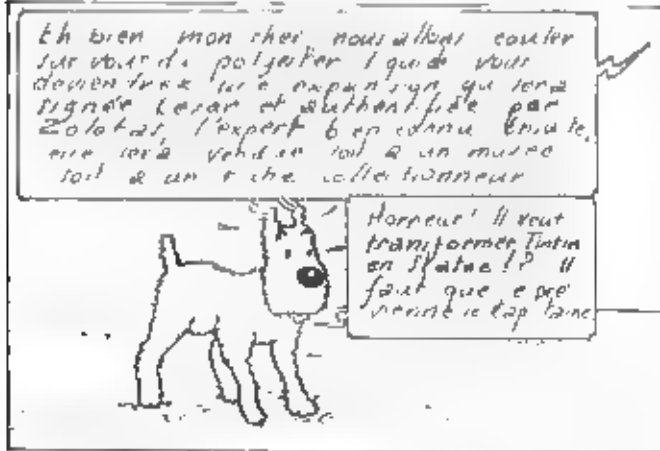 Eh bien mon cher nous allons couler
sur vous du polyester liquide vous
deviendrez une expansion qui sera
signée Cesar et authentifiée par
Zolotas, l'expert bien connu Ensuite,
elle sera vendue soit à un musée
soit à un riche collectionneur
Horreur! Il veut
transformer Tintin
en Statue!? Il
faut que je pré
vienne le capitaine